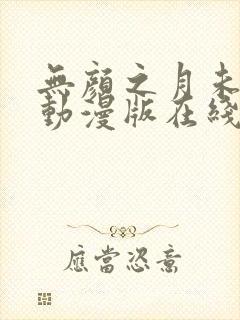 無顏之月未
動漫版在綫
應當恣意